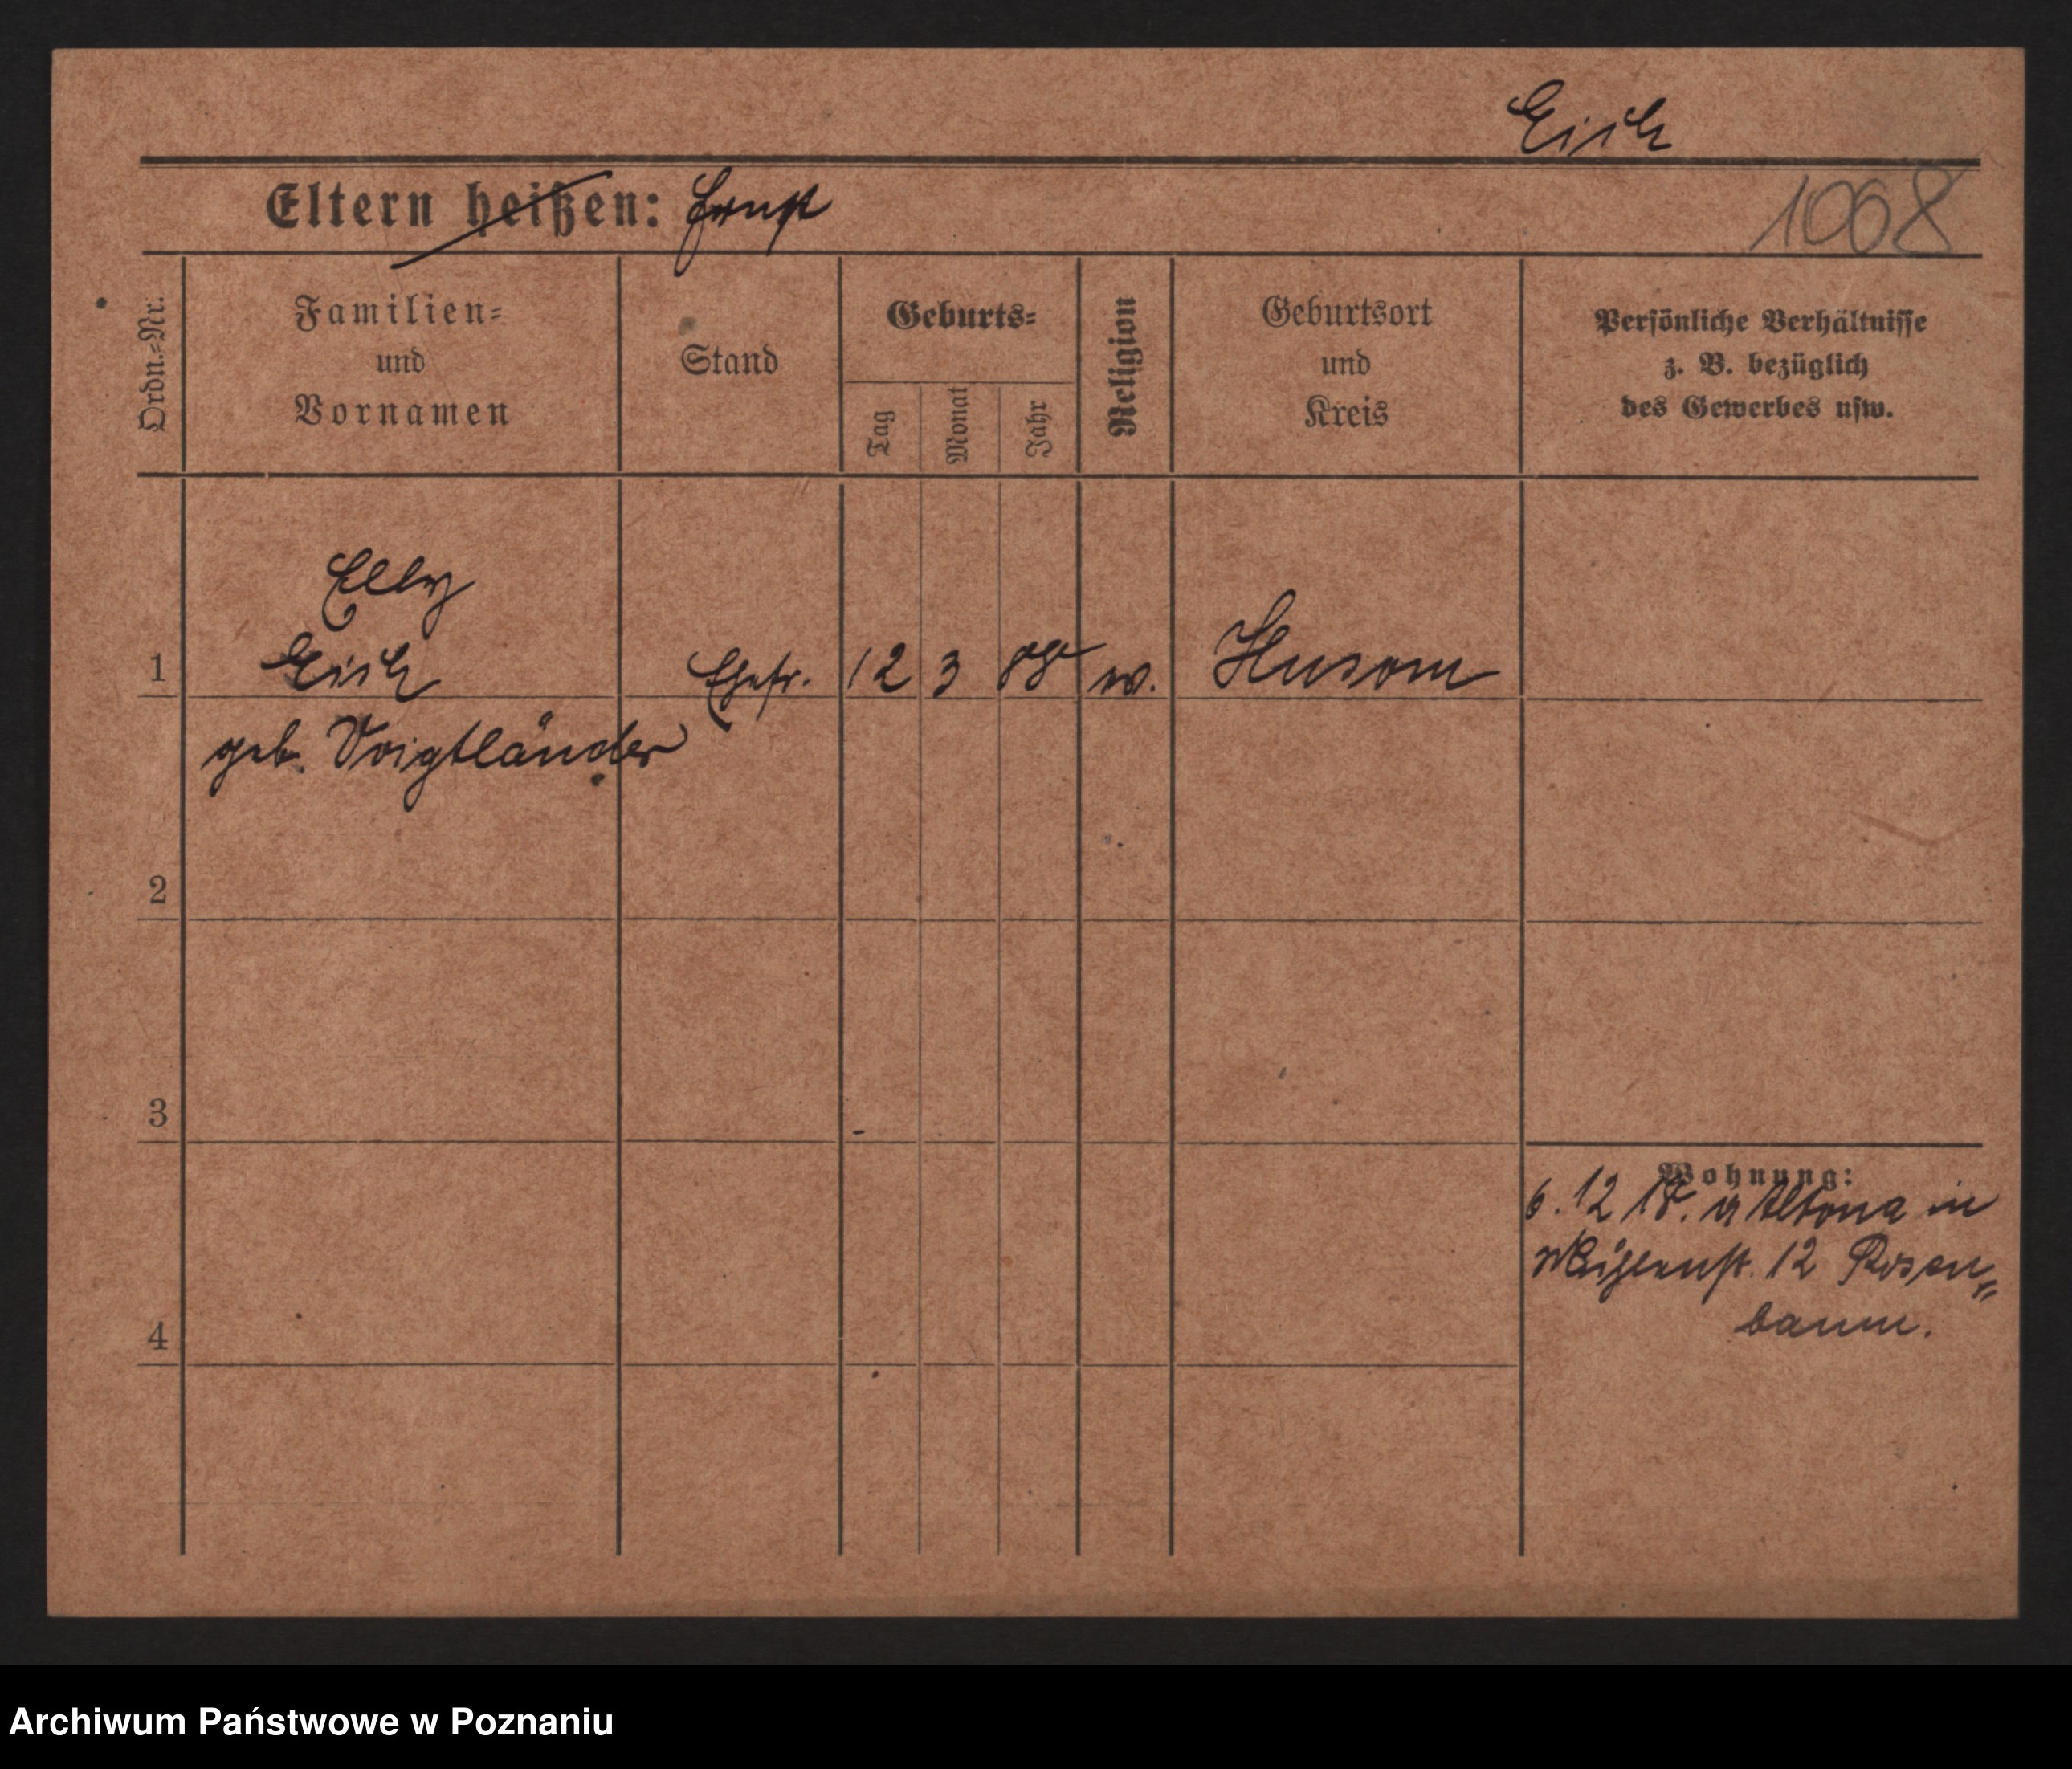 Eich
Eltern heißen: Ernst
1068
Ordn.=Nr.
Familien=
und
Vornamen
Stand
Geburts=
Tag
Monat
Jahr
Religion
Geburtsort
und
Kreis
Persönliche Verhältnisse
z. B. bezüglich
des Gewerbes usw.
Elly
1 Eich Ehefr. 12 3 88 ev. Husom
geb. Voigtländer
2
3
Wohnung:
6. 12 18. Altona in
12 Rosen=
baum.
4
Archiwum Państwowe w Poznaniu